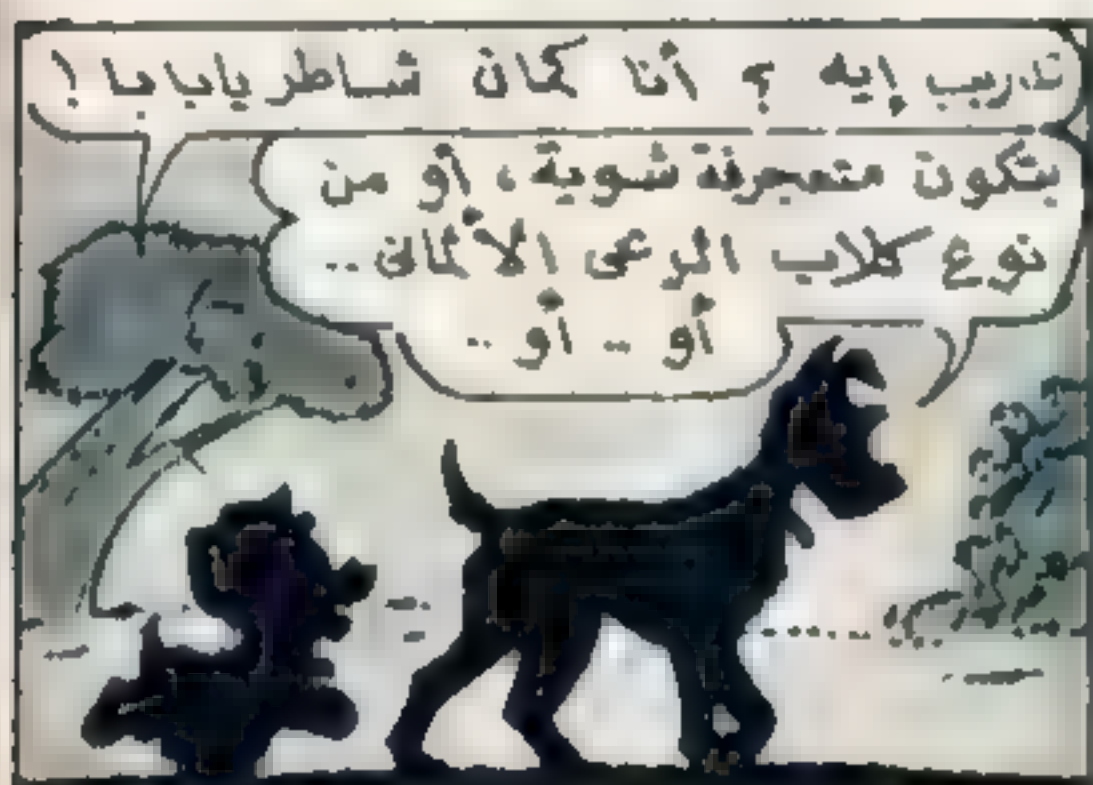 تدريب إيه ؟ أنا كمان شاطر يا بابا !
بتكون متعجرفة شوية ، أو من
نوع كلاب الرعى الألمانى ..
أو .. أو ..